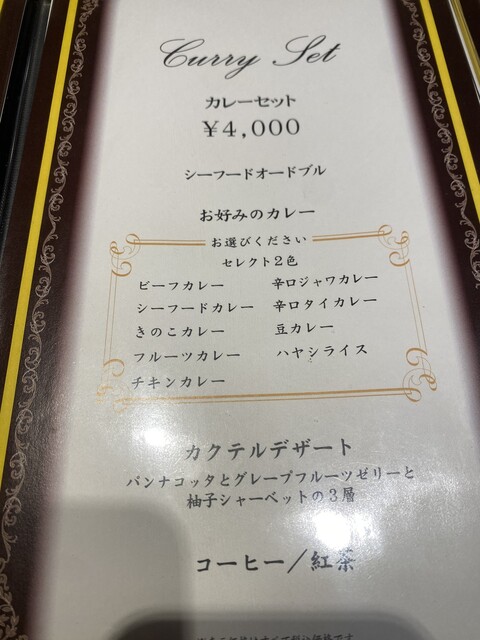 Curry Set
カレーセット
¥4,000
シーフードオードブル
お好みのカレー
お選びください
セレクト2色
ビーフカレー 辛口ジャワカレー
シーフードカレー 辛口タイカレー
きのこカレー 豆カレー
フルーツカレー ハヤシライス
チキンカレー
カクテルデザート
パンナコッタとグレープフルーツゼリーと
柚子シャーベットの3層
コーヒー/紅茶